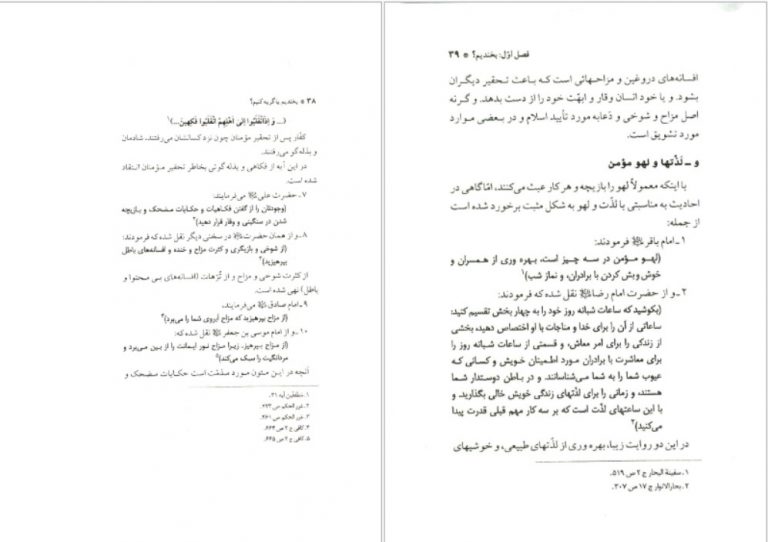 ۳۸ * بخندیم یا گریه کنیم؟
(... وَ إِذَا انْقَلَبُوا إِلَىٰ أَهْلِهِمُ انْقَلَبُوا فَكِهِينَ...)۱
کفّار پس از تحقیر مؤمنان چون نزد کسانشان می‌رفتند، شادمان
و بذله‌گو می‌رفتند.
در این آیه از فکاهی و بذله گوئی بخاطر تحقیر مؤمنان انتقاد
شده است.
۷ـ حضرت علی می‌فرمایند:
(وجودتان را از گفتن فکاهیات و حکایات مضحک و بازیچه
شدن در سنگینی و وقار قرار دهید)۲
۸ـ و از همان حضرت در سخنی دیگر نقل شده که فرمودند:
(از شوخی و بازیگری و کثرت مزاح و خنده و افسانه‌های باطل
بپرهیزید)۳
از کثرت شوخی و مزاح و از تُرّهات (افسانه‌های بی محتوا و
باطل) نهی شده است.
۹ـ امام صادق می‌فرمایند،
(از مزاح بپرهیزید که مزاح آبروی شما را می‌برد)۴
۱۰ـ و از امام موسی بن جعفر نقل شده که:
(از مزاح بپرهیز. زیرا مزاح نور ایمانت را از بین می‌برد و
مردانگیت را سبک می‌کند)۵
آنچه در این متون مورد مذمّت است حکایات مضحک و
۱. مطففین آیه ۳۱.
۲. غرر الحکم ص ۲۹۳.
۳. غرر الحکم ص ۴۶۱.
۴. کافی ج ۲ ص ۶۶۴.
۵. کافی ج ۲ ص ۶۶۵.
فصل اوّل: بخندیم؟ * ۳۹
افسانه‌های دروغین و مزاحهائی است که باعث تحقیر دیگران
بشود. و یا خود انسان وقار و ابهّت خود را از دست بدهد. و گرنه
اصل مزاح و شوخی و دُعابه مورد تأیید اسلام و در بعضی موارد
مورد تشویق است.
و ـ لذّتها و لهو مؤمن
با اینکه معمولاً لهو را بازیچه و هر کار عبث می‌کنند، امّا گاهی در
احادیث به مناسبتی با لذّت و لهو به شکل مثبت برخورد شده است
از جمله:
۱ـ امام باقر فرمودند:
(لهو مؤمن در سه چیز است، بهره وری از همسران و
خوش وبش کردن با برادران، و نماز شب)۱
۲ـ و از حضرت امام رضا نقل شده که فرمودند:
(بکوشید که ساعات شبانه روز خود را به چهار بخش تقسیم کنید:
ساعاتی از آن را برای خدا و مناجات با او اختصاص دهید، بخشی
از زندگی را برای امر معاش، و قسمتی از ساعات شبانه روز را
برای معاشرت با برادران مورد اطمینان خویش و کسانی که
عیوب شما را به شما می‌شناسانند. و در باطن دوستدار شما
هستند، و زمانی را برای لذّتهای زندگی خویش خالی بگذارید. و
با این ساعتهای لذّت است که بر سه کار مهم قبلی قدرت پیدا
می‌کنید)۲
در این دو روایت زیبا، بهره وری از لذّتهای طبیعی، و خوشیهای
۱. سفینة البحار ج ۲ ص ۵۱۹.
۲. بحارالانوار ج ۱۷ ص ۳۰۷.